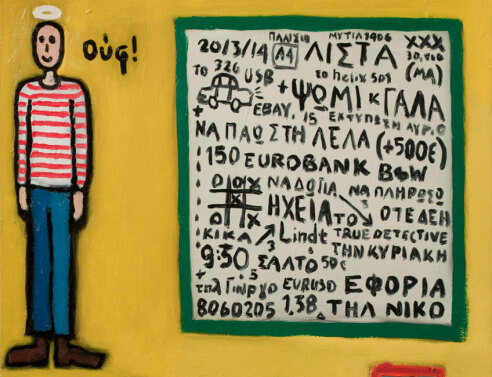 ούφ!
ΠΛΑΙΣΙΟ ΜΥΤΙΛ 2406
20/3/14 A4 ΛΙΣΤΑ XXX
ΤΟ 32G USB το helix 501 (ΜΑ)
+ ΨΩΜΙ Κ ΓΑΛΑ
EBAY, 15 ΕΚΤΥΠΩΣΗ ΑΥΡΙΟ
ΝΑ ΠΑΩ ΣΤΗ ΛΕΛΑ (+500€)
150 EUROBANK B&W
ΝΑ ΔΩ ΓΙΑ ΝΑ ΠΛΗΡΩΣΩ
ΗΧΕΙΑ ΤΟ ΟΤΕ ΔΕΗ
ΚΙΚΑ 3 Lindt 3 TRUE DETECTIVE
ΤΗΝ ΚΥΡΙΑΚΗ
9:30 ΣΑΛΤΟ 50€
+ 5
τηλ Γιώργο EURUSD ΕΦΟΡΙΑ
8060205 1.38 ΤΗΛ ΝΙΚΟ